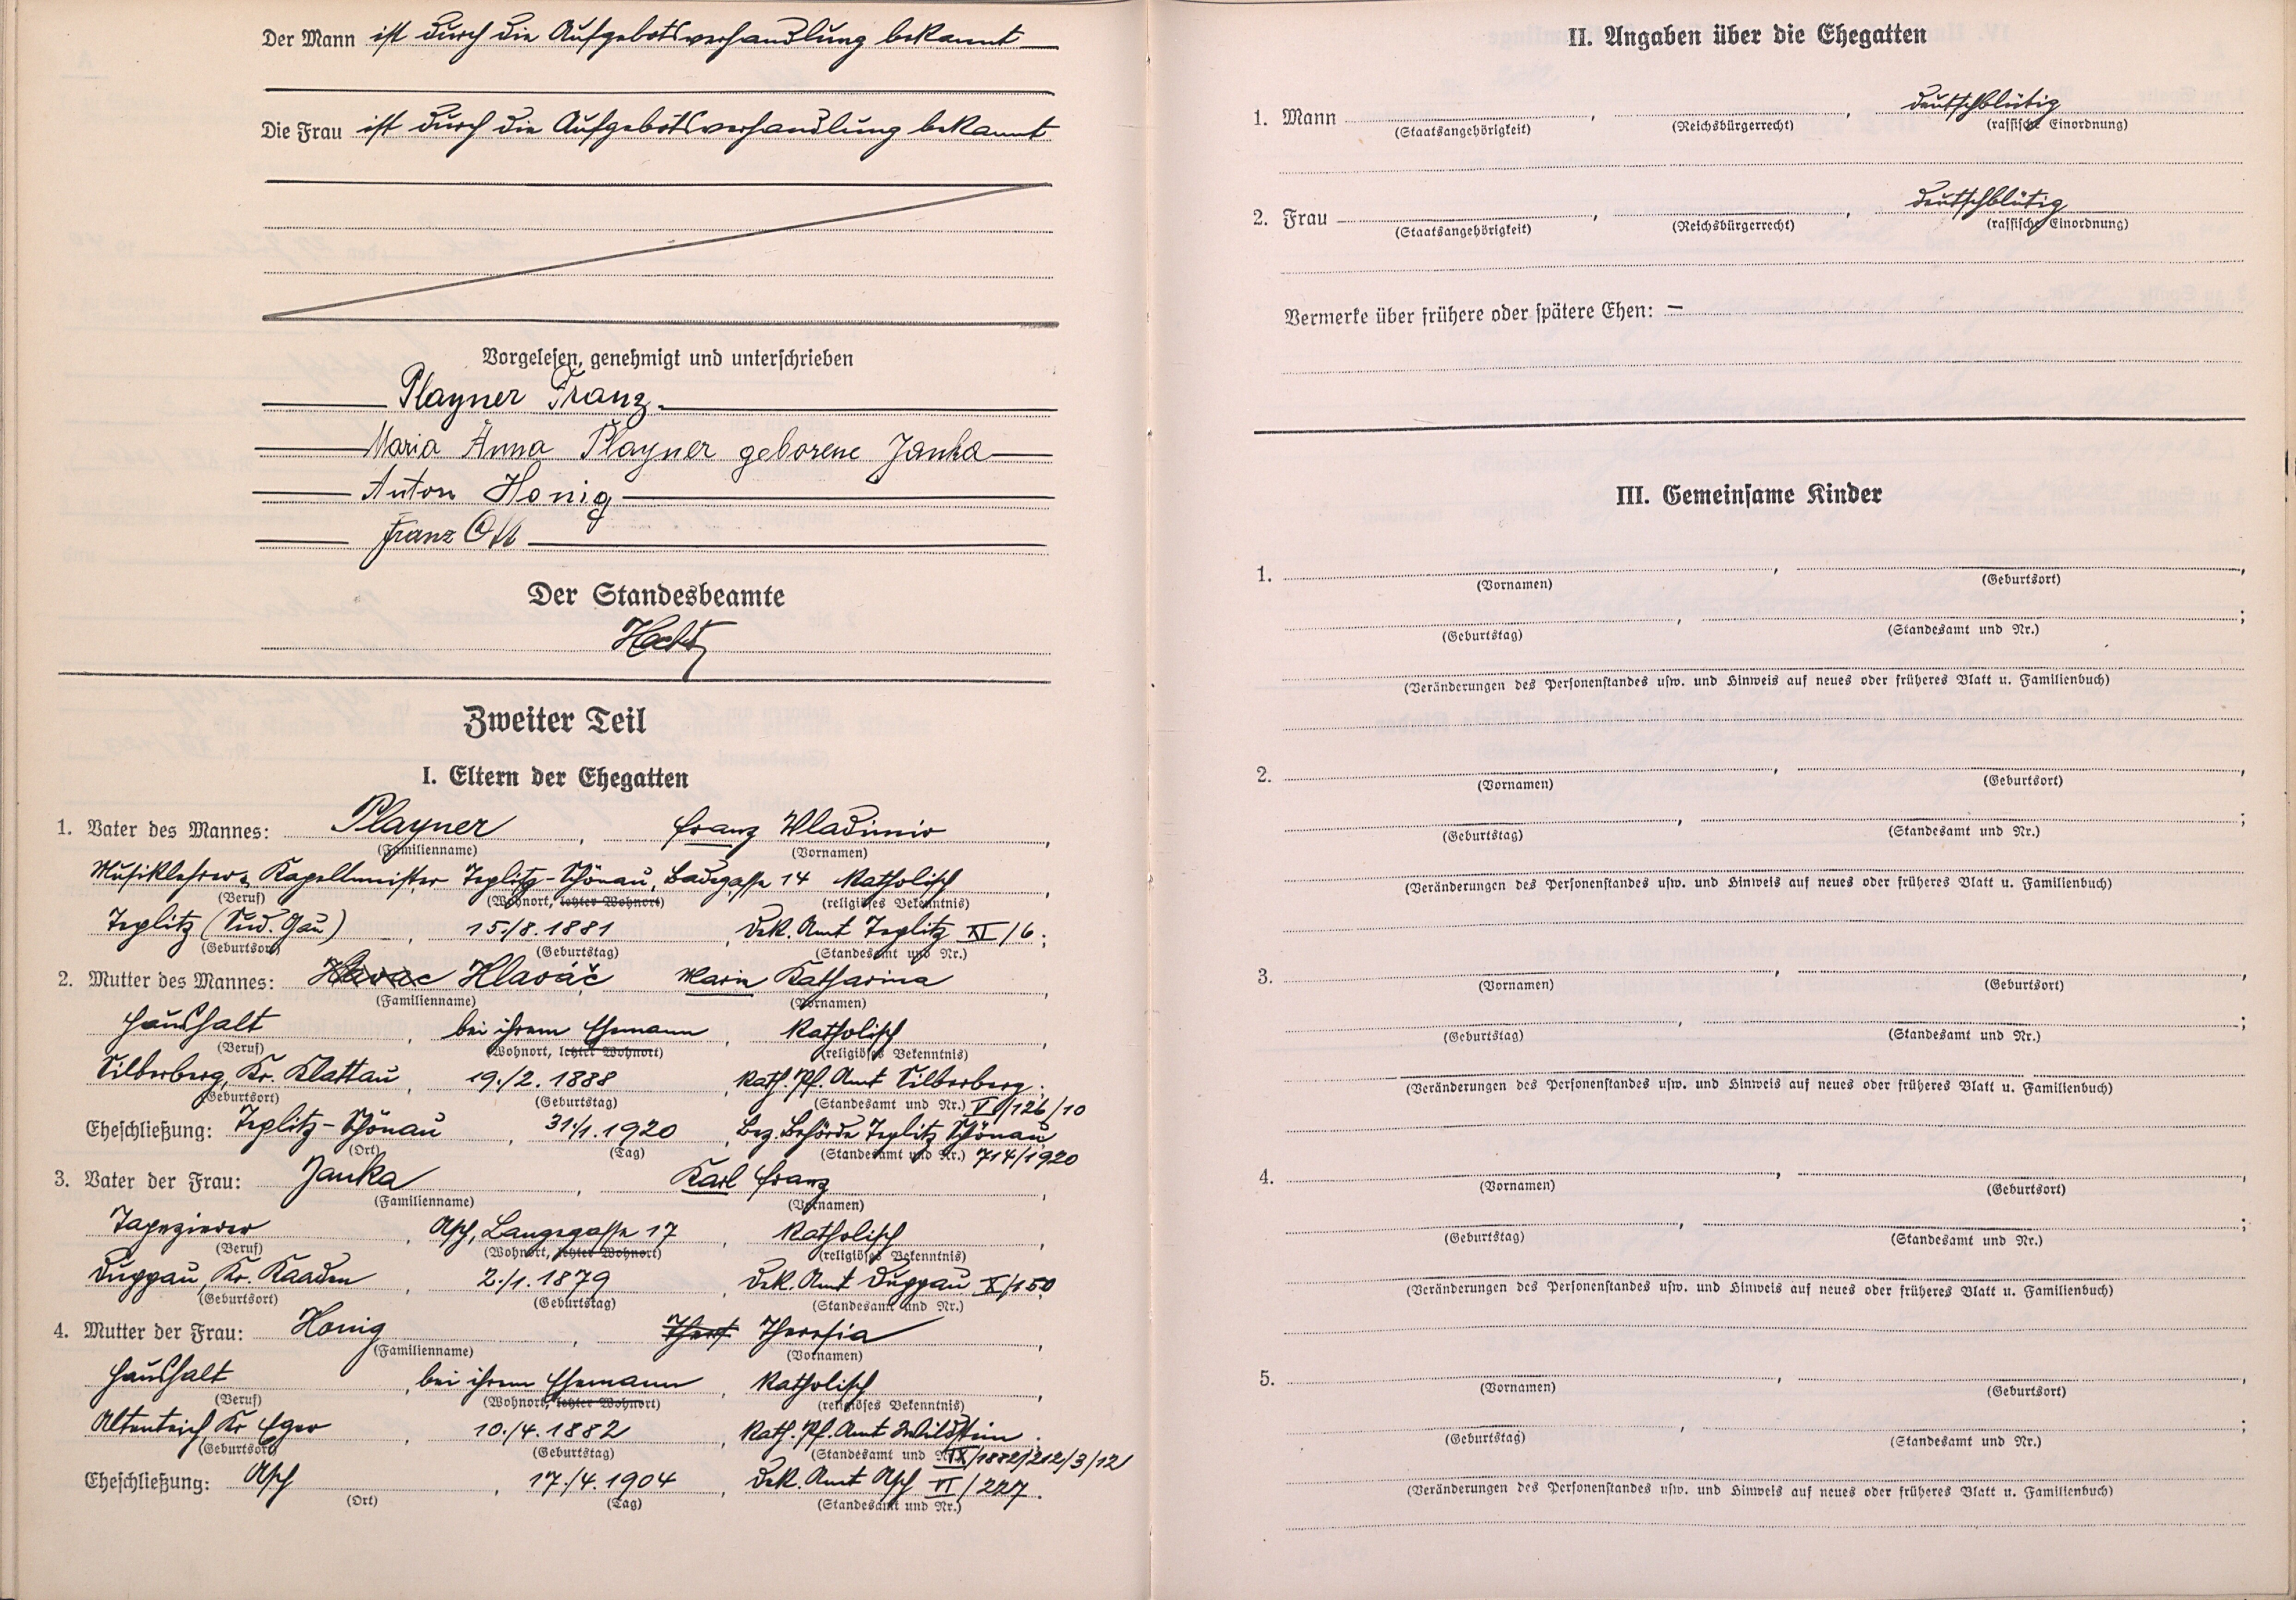 Der Mann ist durch die Aufgebotsverhandlung bekannt
Die Frau ist durch die Aufgebotsverhandlung bekannt
Vorgelesen, genehmigt und unterschrieben
Playner Franz.
Maria Anna Playner geborene Janka
Anton Honig
Franz Ott
Der Standesbeamte
Zweiter Teil
I. Eltern der Ehegatten
1. Vater des Mannes: Playner, Franz Wladimir,
(Familienname) (Vornamen)
Musiklehrer u. Kapellmeister Teplitz-Schönau, Badegasse 14 Katholisch,
(Beruf) (Wohnort, letzter Wohnort) (religiöses Bekenntnis)
Teplitz (Sud. Gau), 15./8. 1881, Dek. Amt Teplitz XI/6;
(Geburtsort) (Geburtstag) (Standesamt und Nr.)
2. Mutter des Mannes: Hlaváč Maria Katharina,
(Familienname) (Vornamen)
Haushalt, bei ihrem Ehemann, Katholisch,
(Beruf) (Wohnort, letzter Wohnort) (religiöses Bekenntnis)
Silberberg, Kr. Klattau, 19./2. 1888, Kath. Pf. Amt Silberberg;
(Geburtsort) (Geburtstag) (Standesamt und Nr.) /126/10
Eheschließung: Teplitz-Schönau, 31./1. 1920, Bez. Behörde Teplitz Schönau
(Ort) (Tag) (Standesamt und Nr.) 714/1920
3. Vater der Frau: Janka, Karl Franz,
(Familienname) (Vornamen)
Tapezierer, Asch, Langegasse 17, Katholisch,
(Beruf) (Wohnort, letzter Wohnort) (religiöses Bekenntnis)
Duppau, Kr. Kaaden, 2./1. 1879, Dek. Amt Duppau X/150
(Geburtsort) (Geburtstag) (Standesamt und Nr.)
4. Mutter der Frau: Honig, Theresia,
(Familienname) (Vornamen)
Haushalt, bei ihrem Ehemann, Katholisch,
(Beruf) (Wohnort, letzter Wohnort) (religiöses Bekenntnis)
Altenteich, Kr Eger, 10./4. 1882, Kath. Pf. Amt Wildstein;
(Geburtsort) (Geburtstag) (Standesamt und Nr.) IX/1882/212/3/12
Eheschließung: Asch, 17./4. 1904, Dek. Amt Asch VI/227.
(Ort) (Tag) (Standesamt und Nr.)
II. Angaben über die Ehegatten
1. Mann , , deutschblütig
(Staatsangehörigkeit) (Reichsbürgerrecht) (rassische Einordnung)
2. Frau , , deutschblütig
(Staatsangehörigkeit) (Reichsbürgerrecht) (rassische Einordnung)
Vermerke über frühere oder spätere Ehen: –
III. Gemeinsame Kinder
1. , ,
(Vornamen) (Geburtsort)
, ;
(Geburtstag) (Standesamt und Nr.)
(Veränderungen des Personenstandes usw. und Hinweis auf neues oder früheres Blatt u. Familienbuch)
2. , ,
(Vornamen) (Geburtsort)
, ;
(Geburtstag) (Standesamt und Nr.)
(Veränderungen des Personenstandes usw. und Hinweis auf neues oder früheres Blatt u. Familienbuch)
3. , ,
(Vornamen) (Geburtsort)
, ;
(Geburtstag) (Standesamt und Nr.)
(Veränderungen des Personenstandes usw. und Hinweis auf neues oder früheres Blatt u. Familienbuch)
4. , ,
(Vornamen) (Geburtsort)
, ;
(Geburtstag) (Standesamt und Nr.)
(Veränderungen des Personenstandes usw. und Hinweis auf neues oder früheres Blatt u. Familienbuch)
5. , ,
(Vornamen) (Geburtsort)
, ;
(Geburtstag) (Standesamt und Nr.)
(Veränderungen des Personenstandes usw. und Hinweis auf neues oder früheres Blatt u. Familienbuch)